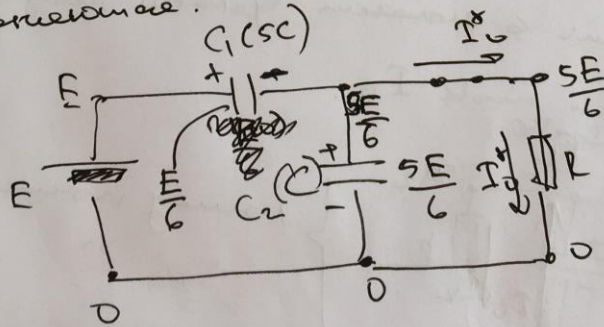 C₁(5C)
I₀*
E
+
5E/6
5E/6
E
E/6
+
C₂(C)
5E/6
I₀*
R
-
0
0
0